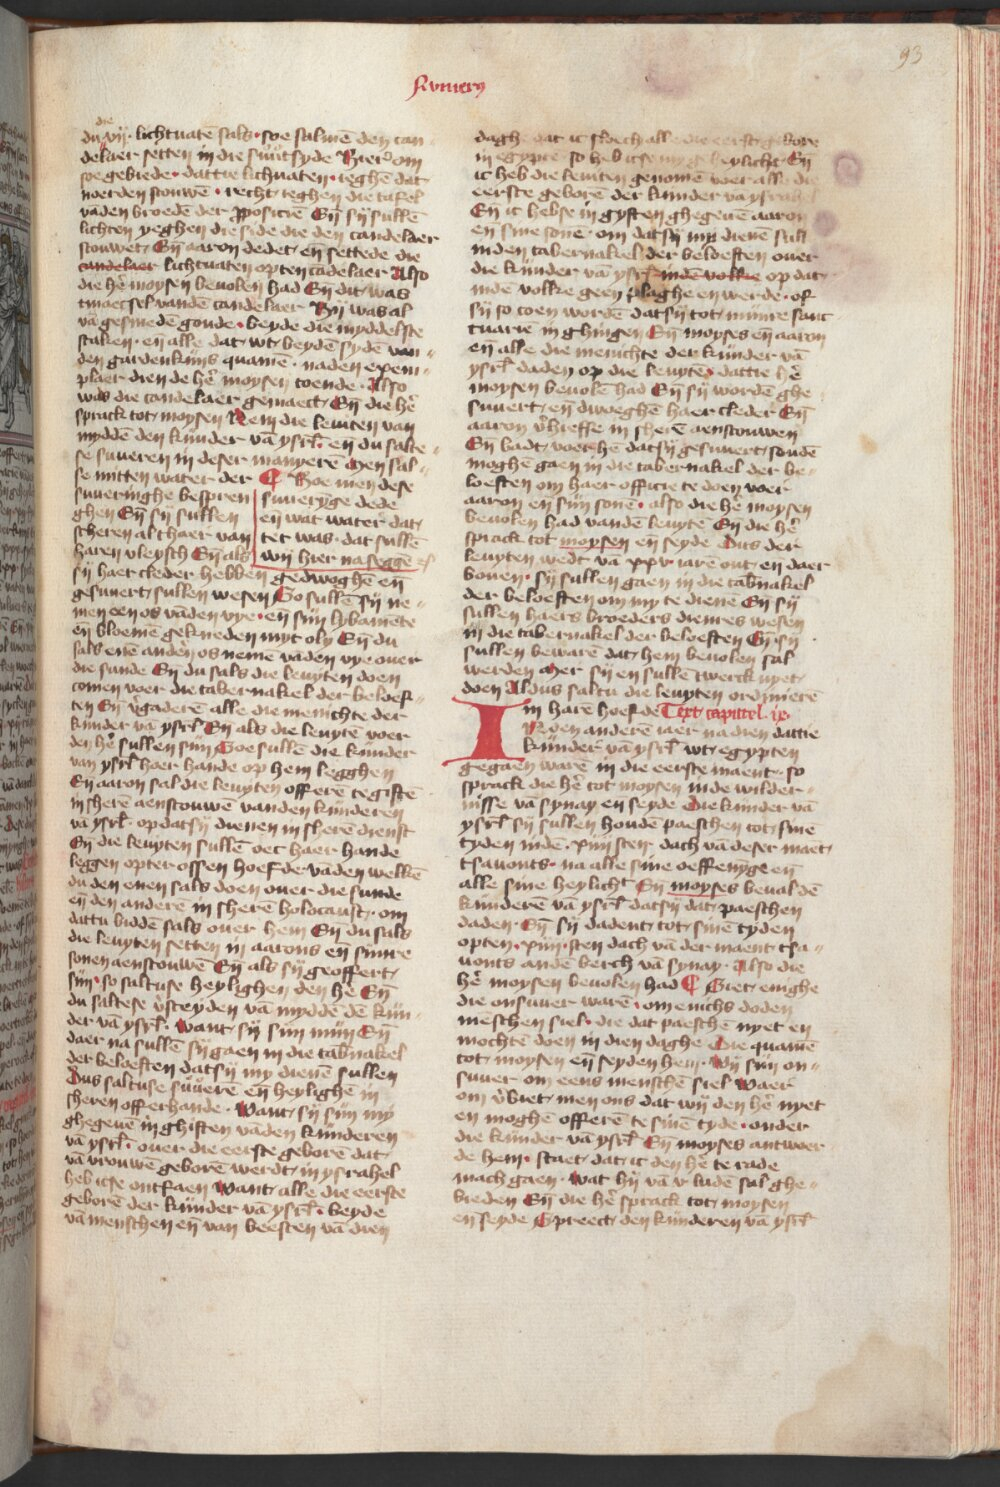 93
Numerij
die
du vij. lichtuatē sals. soe salmē den can
delaer setten in die suutsyde Hier om
soe gebiede. dattie lichuaten. ieghē dat
noerden scouwē. recht ieghen die tafel
vāden broedē der ꝓposiciē Eñ sij sullē
lichten yeghen die side die den candelaer
scouwet Eñ aaron dedet. eñ settede die
candelaer lichtuaten opten cādelaer Also
die hē moysen beuolen had Eñ dit was
tmaecsel vandē candelaer Hij was al
vā gesmedē goude. beyde die myddelste
staken. eñ alle dat wt beydē sydē van
den gardenkijns quamē. naden exem
plaer dien de hē moysen toende. Also
was die candelaer gemaect Eñ die hē
sprack tot moysen Nem die leuiten van
myddē den kijnder vā ysrl̄. eñ du salte
se suueren in deser manyerē Men sal
se mitten water der
suueringhe bespren
ghen Eñ sij sullen
scheren al thaer van
haren vleysch Eñ als
¶ Hoe men dese
suuerige dede
eñ wat water dat
ter was. dat sullē
wij hier na seggē
sij haer cleder hebben gedwoghē eñ
gesuuert sullen wesen So sullē sij ne
men een os vāden vye. eñ sijn lybamēte
eñ bloeme gekneden myt oly Eñ du
sals enē andē os nemē vāden vye ouer
die sunde Eñ du sals die leuyten doen
comen voer die tabernakel der beloef
ten Eñ v̄gaderē alle die menichte der
kijnder vā ysrl̄ Eñ als die leuytē voer
den hē sullen sijn Soe sullē die kijnder
van ysrl̄ hoer hande op hem legghen
Eñ aaron sal die leuyten offerē te giftē
in sherē aenscouwē vanden kijnderen
vā ysrl̄. op datsij dienen in sherē dienst
Eñ die leuyten sullē oec haer hande
leggen opter ossen hoefde vāden welkē
du den enen sals doen ouer die sunde
eñ den anderē in sherē holocaust. om
dattu biddē sals ouer hem Eñ du sals
die leuyten setten in aarons eñ sijnre
sonen aenscouwē Eñ als sij geoffert
sijn. so saltuse heylighen den hē Eñ
du saltese v̄sceyden vā myddē dē kijn
der vā ysrl̄. Want sij sijn mijn Eñ
daer na sullē sij gaen in die tab̄nakel
der beloeften datsij my dienē sullen
Dus saltuse suuerē eñ heylighē in
sheren offerhande. Want sij sijn my
ghegeuē in ghiften vāden kijnderen
vā ysrl̄. ouer die eerste geborē dat
vā vrouwē geborē werdt in ysrahel
heb icse ontfaen Want alle die eerste
geborē der kijnder vā ysrl̄. beyde
vā menschen eñ van beesten vā dien
dagh dat ic sloech alle die eerst gebore
in egypte so heb icse my geheylicht. Eñ
ic heb die leuiten genomē voer alle die
eerste geborē der kijnder vā ysrahel
Eñ ic hebse in gyften ghegeuē aaron
eñ sine sonē. om datsij my dienē sull
in den tabernakel der beloeften ouer
die kijnder vā ysrl̄ indē volke op dat
indē volke geen plaghe en werde. of
sij so coen wordē datsij tot mijnre sanc
tuarē in ghingen Eñ moyses eñ aaron
eñ alle die menichte der kijnder vā
ysrl̄ daden op die leuytē dattie hē
moysen beuolē had Eñ sij wordē ghe
suuert eñ dwoeghē haer cleder Eñ
aaron v̄hieffe in sherē aenscouwen
Eñ badt voer hē datsij gesuuert soudē
moghē gaen in die tabernakel der be
loeften om haer officie te doen voer
aaron eñ sijn sonē. also die hē moysen
beuolen had vandē leuytē Eñ die hē
sprack tot moysen eñ seyde Dits der
leuyten wedt vā xxv. iarē out eñ daer
bouen. sij sullen gaen in die tab̄nakel
der beloeften om my te dienē Eñ sij
sullen haers broeders dienres wesen
in die tabernakel der beloeften Eñ sij
sullen bewarē dat hem beuolen sal
werden Mer sij en sullē twerck nyet
doen Aldus saltu die leuyten ordinierē
in harē hoefde Text capittel. ix.
In den anderē iaer na dien dattie
kijnder vā ysrl̄ wt egypten
gegaen warē in die eerste maent. so
sprack die hē tot moysen in de wilder
nisse vā synay eñ seyde Die kijnder vā
ysrl̄ sij sullen houdē paeschen tot sinē
tyden indē. xiiij sten dach vā deser maet
tsauonts. na alle sine oeffenige eñ
alle sine heylicht Eñ moyses beual dē
kijnderē vā ysrl̄ datsij dat paeschen
daden. Eñ sij dadent tot sinē tyden
opten. xiiij. sten dach vā der maent tsa
uonts andē berch vā synay. Also die
hē moysen beuolen had ¶ Siet enighe
die onsuuer warē. om enichs doden
mēschen siel. die dat paeschē nyet en
mochtē doen in dien daghe Die quamē
tot moysen eñ seyden hem. Wij sijn on
suuer om eens menschē siel Waer
om v̄biet men ons dat wij den hē nyet
en moghē offerē te sinē tyde. onder
die kijnder vā ysrl̄ Eñ moyses antwoer
de hem. staet dat ic den hē te rade
mach gaen. wat hij vā v luden sal ghe
bieden Eñ die hē sprack tot moysen
en seyde Spreect den kijnderen vā ysrl̄